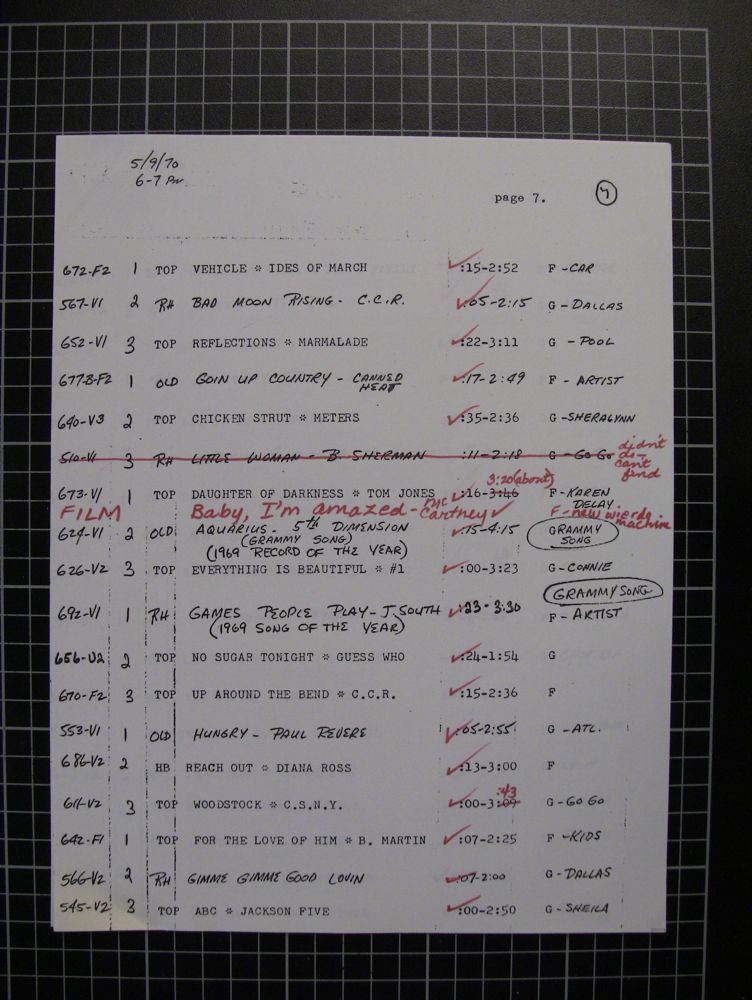 5/9/70
6-7 PM
page 7. 7
672-F2 1 TOP VEHICLE * IDES OF MARCH :15-2:52 F - CAR
567-V1 2 RH BAD MOON RISING - C.C.R. :05-2:15 G - DALLAS
652-V1 3 TOP REFLECTIONS * MARMALADE :22-3:11 G - POOL
677-B-F2 1 OLD GOIN UP COUNTRY - CANNED HEAT :17-2:49 F - ARTIST
640-V3 2 TOP CHICKEN STRUT * METERS :35-2:36 G - SHERALYNN
510-V1 3 RH LITTLE WOMAN - B. SHERMAN :11-2:18 G - GO GO didn't do - can't find
3:20 (about)
673-V1 1 TOP DAUGHTER OF DARKNESS * TOM JONES :16-3:46 F - KAREN DELAY.
FILM Baby, I'm amazed - McCartney F - new wierdo machine
624-V1 2 OLD AQUARIUS - 5th DIMENSION :15-4:15 GRAMMY SONG
(GRAMMY SONG)
(1969 RECORD OF THE YEAR)
626-V2 3 TOP EVERYTHING IS BEAUTIFUL * #1 :00-3:23 G - CONNIE
GRAMMY SONG
692-V1 1 RH GAMES PEOPLE PLAY - J. SOUTH :23-3:30 F - ARTIST
(1969 SONG OF THE YEAR)
656-V2 2 TOP NO SUGAR TONIGHT * GUESS WHO :24-1:54 G
670-F2 3 TOP UP AROUND THE BEND * C.C.R. :15-2:36 F
553-V1 1 OLD HUNGRY - PAUL REVERE :05-2:55 G - ATL.
686-V2 2 HB REACH OUT * DIANA ROSS :13-3:00 F
:43
611-V2 3 TOP WOODSTOCK * C.S.N.Y. :00-3:09 G - GO GO
642-F1 1 TOP FOR THE LOVE OF HIM * B. MARTIN :07-2:25 F - KIDS
566-V2 2 RH GIMME GIMME GOOD LOVIN :07-2:00 G - DALLAS
545-V2 3 TOP ABC * JACKSON FIVE :00-2:50 G - SHEILA